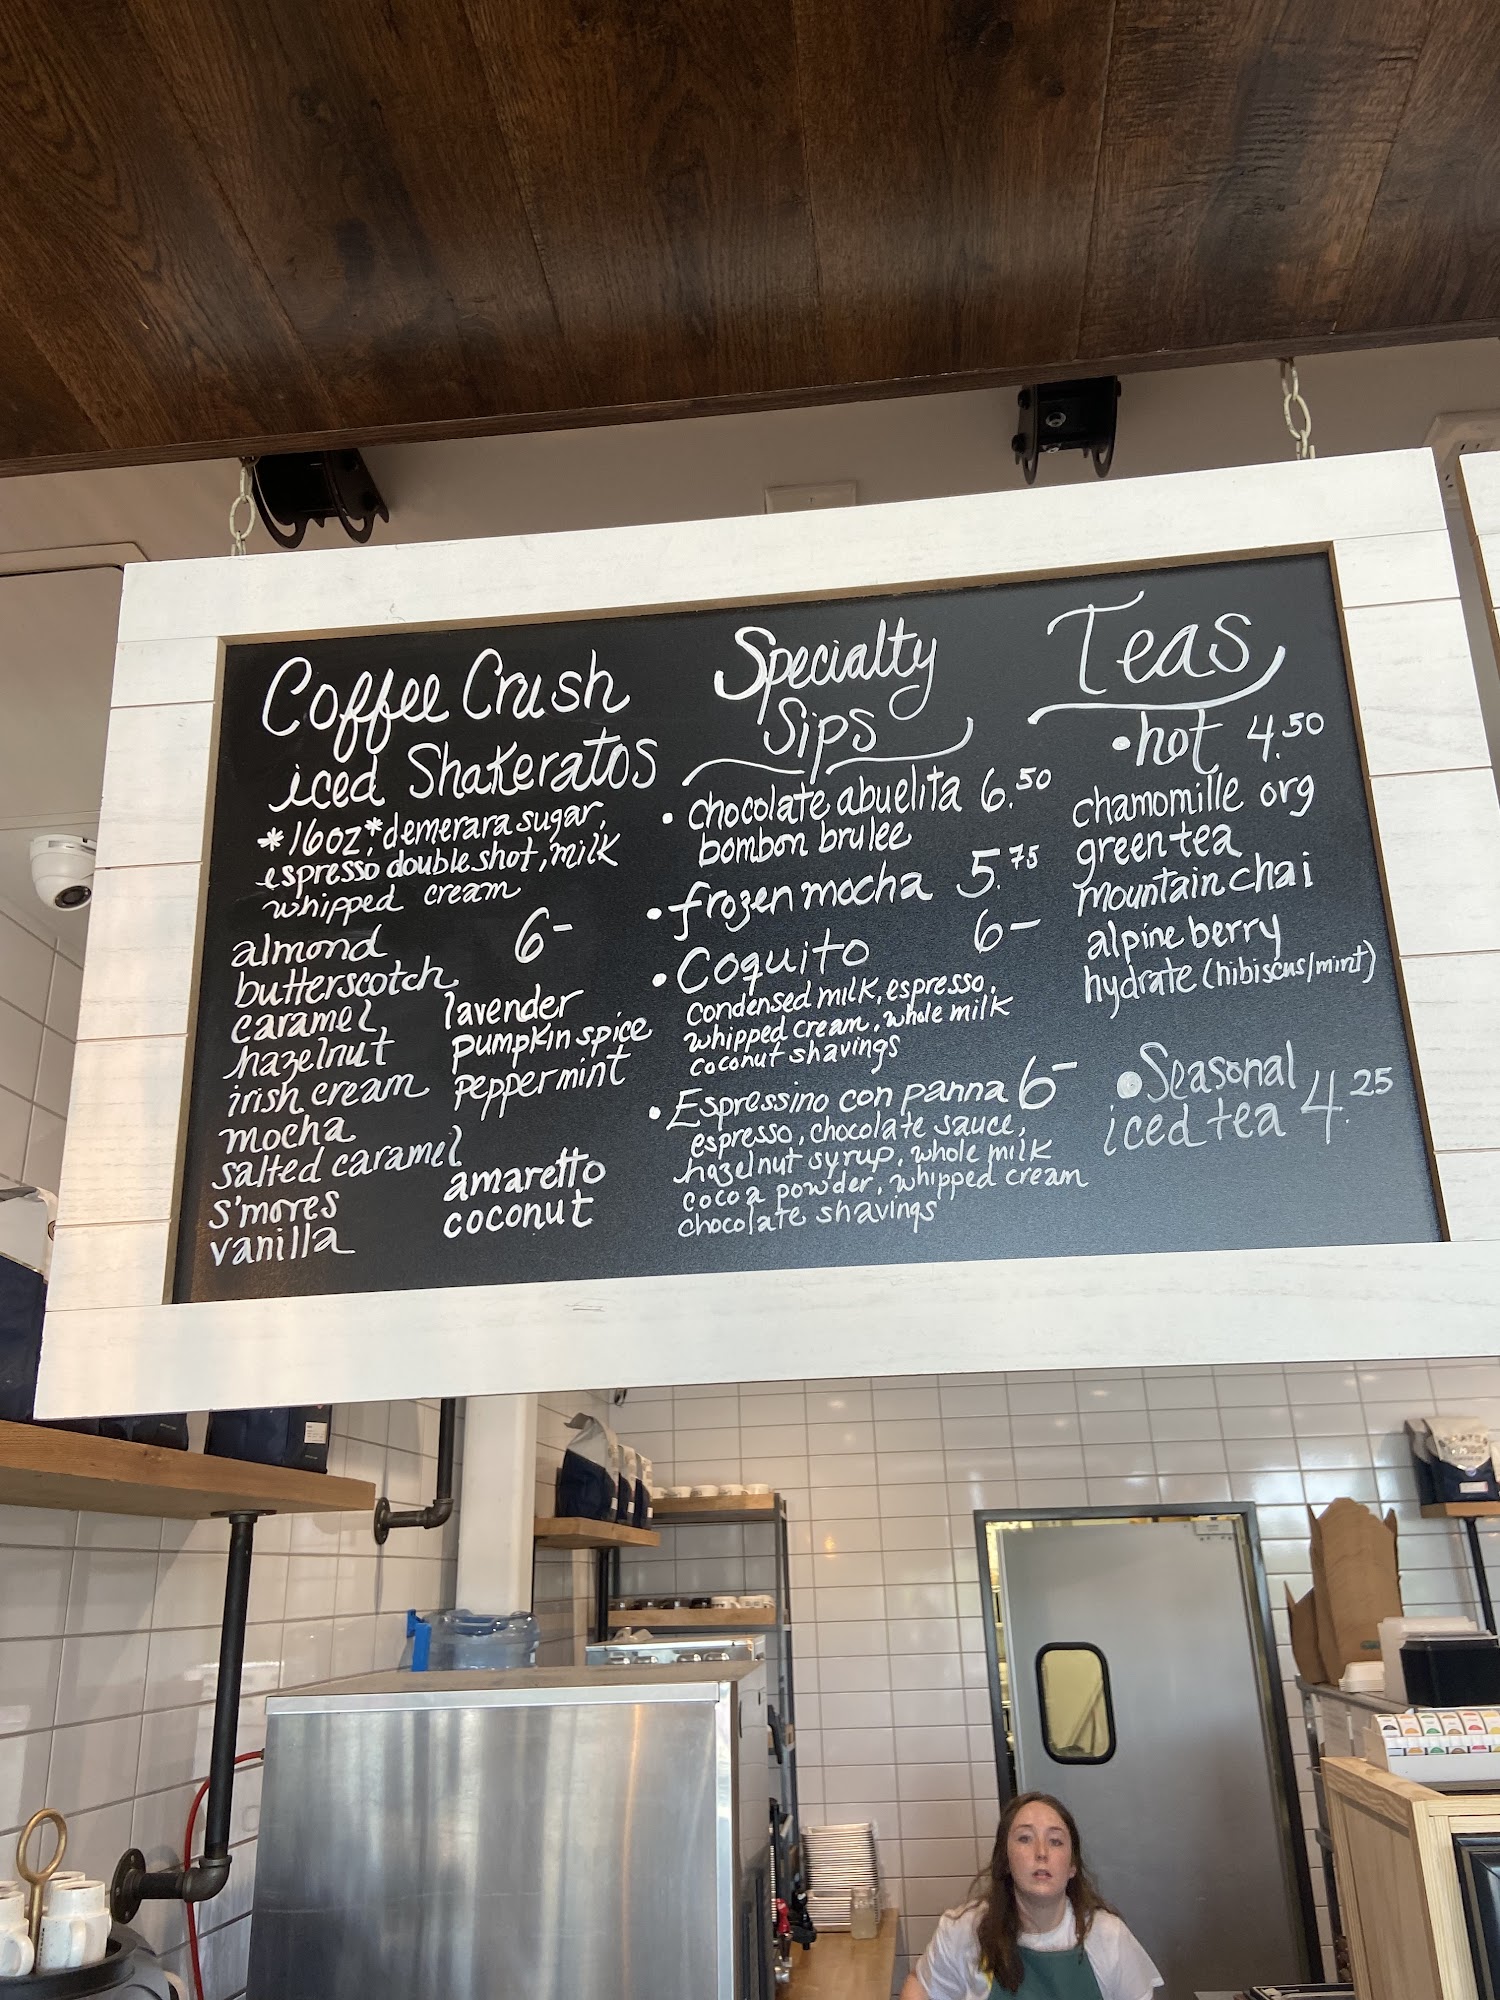 Coffee Crush
iced Shakeratos
*16oz* demerara sugar,
espresso double shot, milk
whipped cream
6-
almond
butterscotch
caramel
hazelnut
irish cream
mocha
salted caramel
s'mores
vanilla
lavender
pumpkin spice
peppermint
amaretto
coconut
Specialty
Sips
• chocolate abuelita 6.50
bombon brulee
• frozen mocha 5.75
• Coquito 6-
condensed milk, espresso,
whipped cream, whole milk
coconut shavings
• Espressino con panna 6-
espresso, chocolate sauce,
hazelnut syrup, whole milk
cocoa powder, whipped cream
chocolate shavings
Teas
• hot 4.50
chamomille org
green tea
mountain chai
alpine berry
hydrate (hibiscus/mint)
• Seasonal
iced tea 4.25